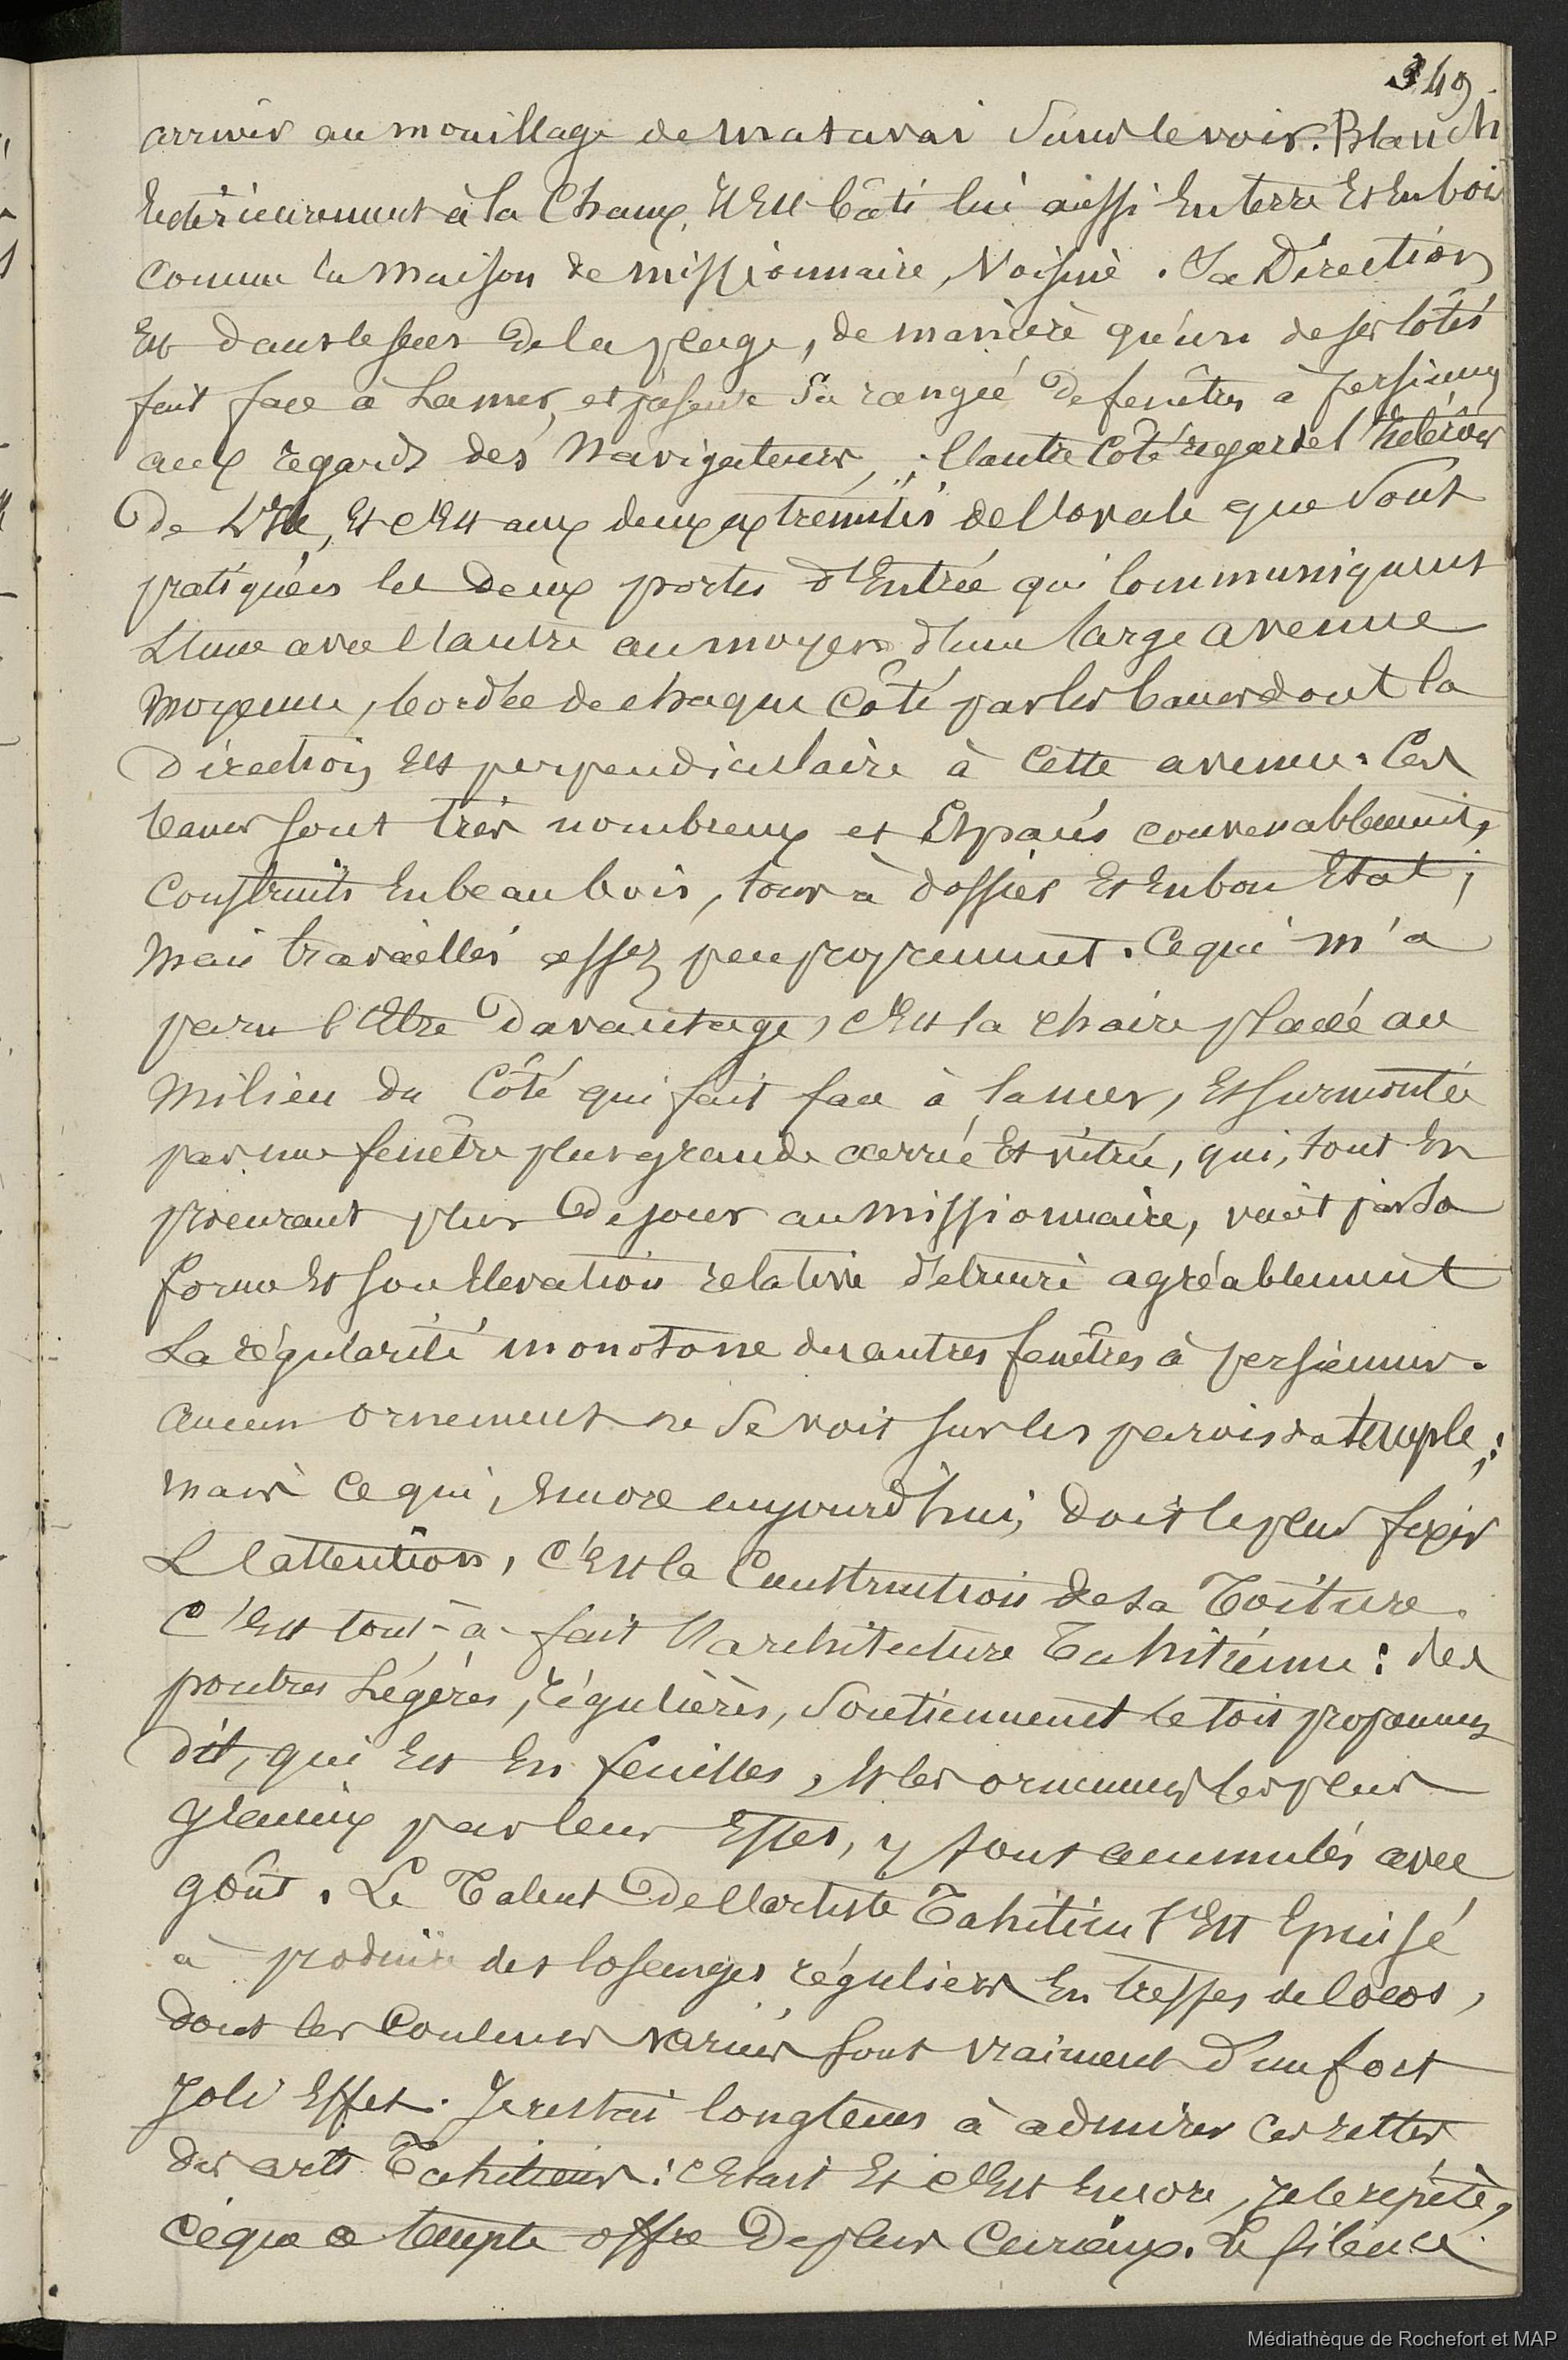 349
arriver au mouillage de matavai Sans le voir. Blanchi
Extérieurement à la Chaux, Il Est bâti lui aussi En terre Et En bois
Comme la Maison de Missionnaire, Voisine. Sa Direction
Est dans le sens De la plage, de manière qu'un de ses Côtés
fait face à La mer, et présente Sa rangée De fenêtres à persiennes
aux regards des Navigateurs, ; l'autre Côté regarde l'Intérieur
De L'Ile, Et c'Est aux deux extrémités de l'ovale que Sont
pratiquées les Deux portes d'Entrée qui Communiquent
L'une avec l'autre au moyen d'une large avenue
Moyenne, bordée de chaque Côté par les bancs dont la
Direction Est perpendiculaire à Cette avenue. Ces
bancs sont très nombreux et Espacés convenablement,
Construits En beau bois, tous à dossier Et En bon Etat ;
Mais travaillés assez peu proprement. Ce qui m'a
paru l'Etre Davantage, c'Est la chaire placée au
Milieu du Côté qui fait face à la mer, Et surmontée
par une fenêtre plus grande carrée Et vitrée, qui, tout En
procurant plus De jour au Missionnaire, vient par Sa
forme Et son Elevation relative détruire agréablement
La régularité monotone des autres fenêtres à persiennes.
Aucun ornement ne Se voit sur les parois du temple ;
Mais Ce qui, Encore aujourd'hui, Doit le plus fixer
L l'attention, C'Est la Construction de sa Toiture.
C'Est tout-à-fait l'architecture Tahitienne : des
poutres Légères, régulières, Soutiennent le toit proprement
Dit, qui Est En feuilles, Et les ornements les plus
gracieux par leur Effet, y sont accumulés avec
goût. Le Talent De l'artiste Tahitien s'Est Epuisé
à produire des losanges réguliers En tresses de Cocos,
Dont les Couleurs variées font vraiment D'un fort
Joli Effet. Je restai longtems à admirer Ces restes
Des arts Tahitiens : C'était Et C'Est Encore, je le répète,
Ce que ce temple offre De plus Curieux. Le silence
Médiathèque de Rochefort et MAP